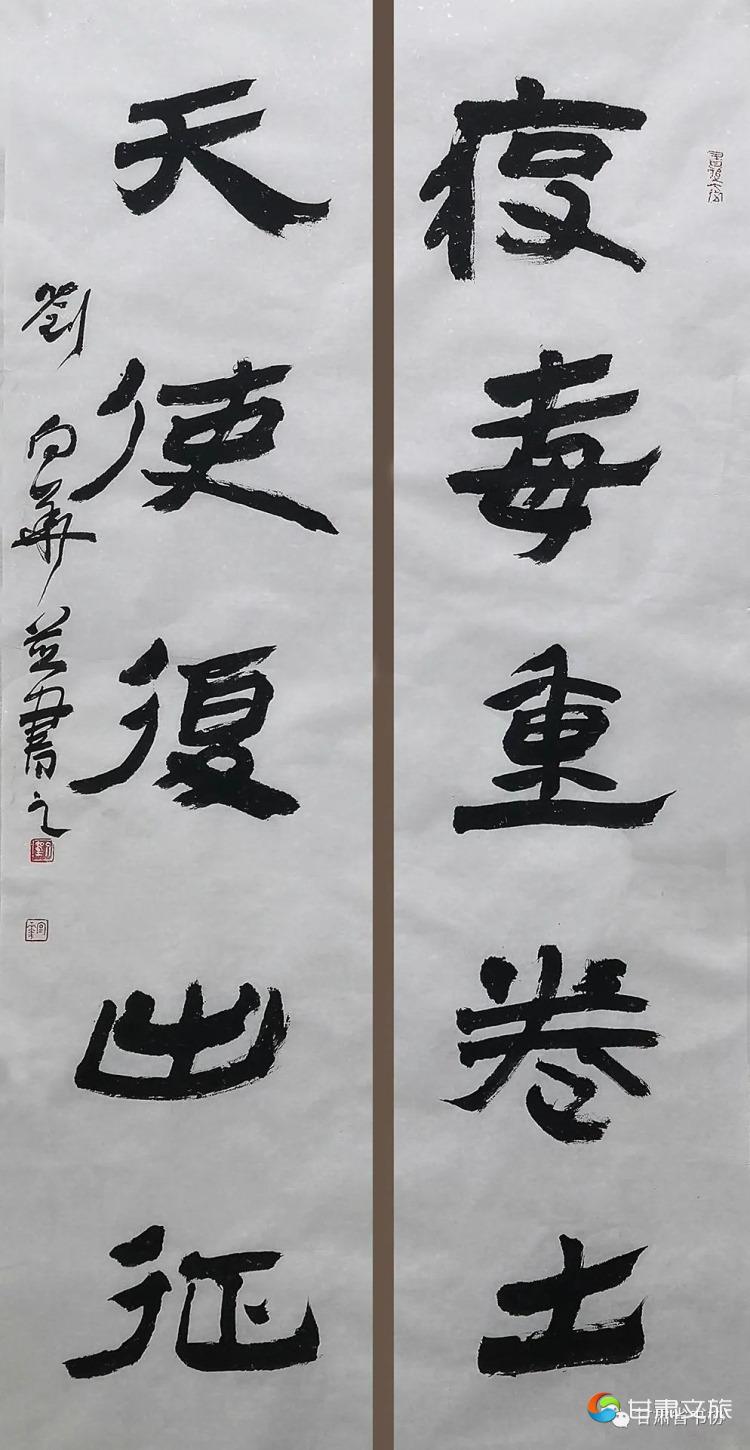 疫毒重卷土
天使復出征
劉向華并書之
甘肃文旅
甘肃省书协